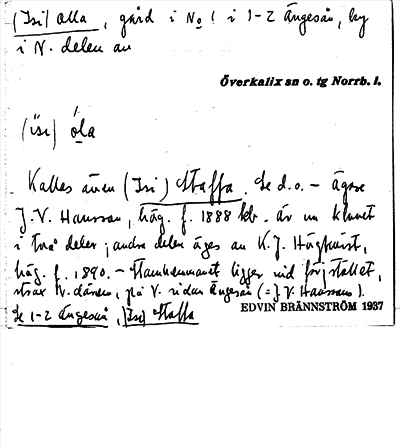 (Isi) Olla, gård i No 1 i 1-2 Ängesån, by
i N. delen av
Överkalix sn o. tg Norrb. l.
(ı̈sı) óla
Kallas även (Isi) Staffa. Se d.o. - Ägare
J.V. Hansson, häg. f. 1888 kb. är nu kluvet
i två delar; andra delen äges av K.J. Högkvist,
häg. f. 1890. - Stamhemmanet ligger vid för stället,
strax N. därom, på V. sidan Ängesån (= J.V. Hanssons).
Se 1-2 Ängesån, (Isi) Staffa
EDVIN BRÄNNSTRÖM 1937